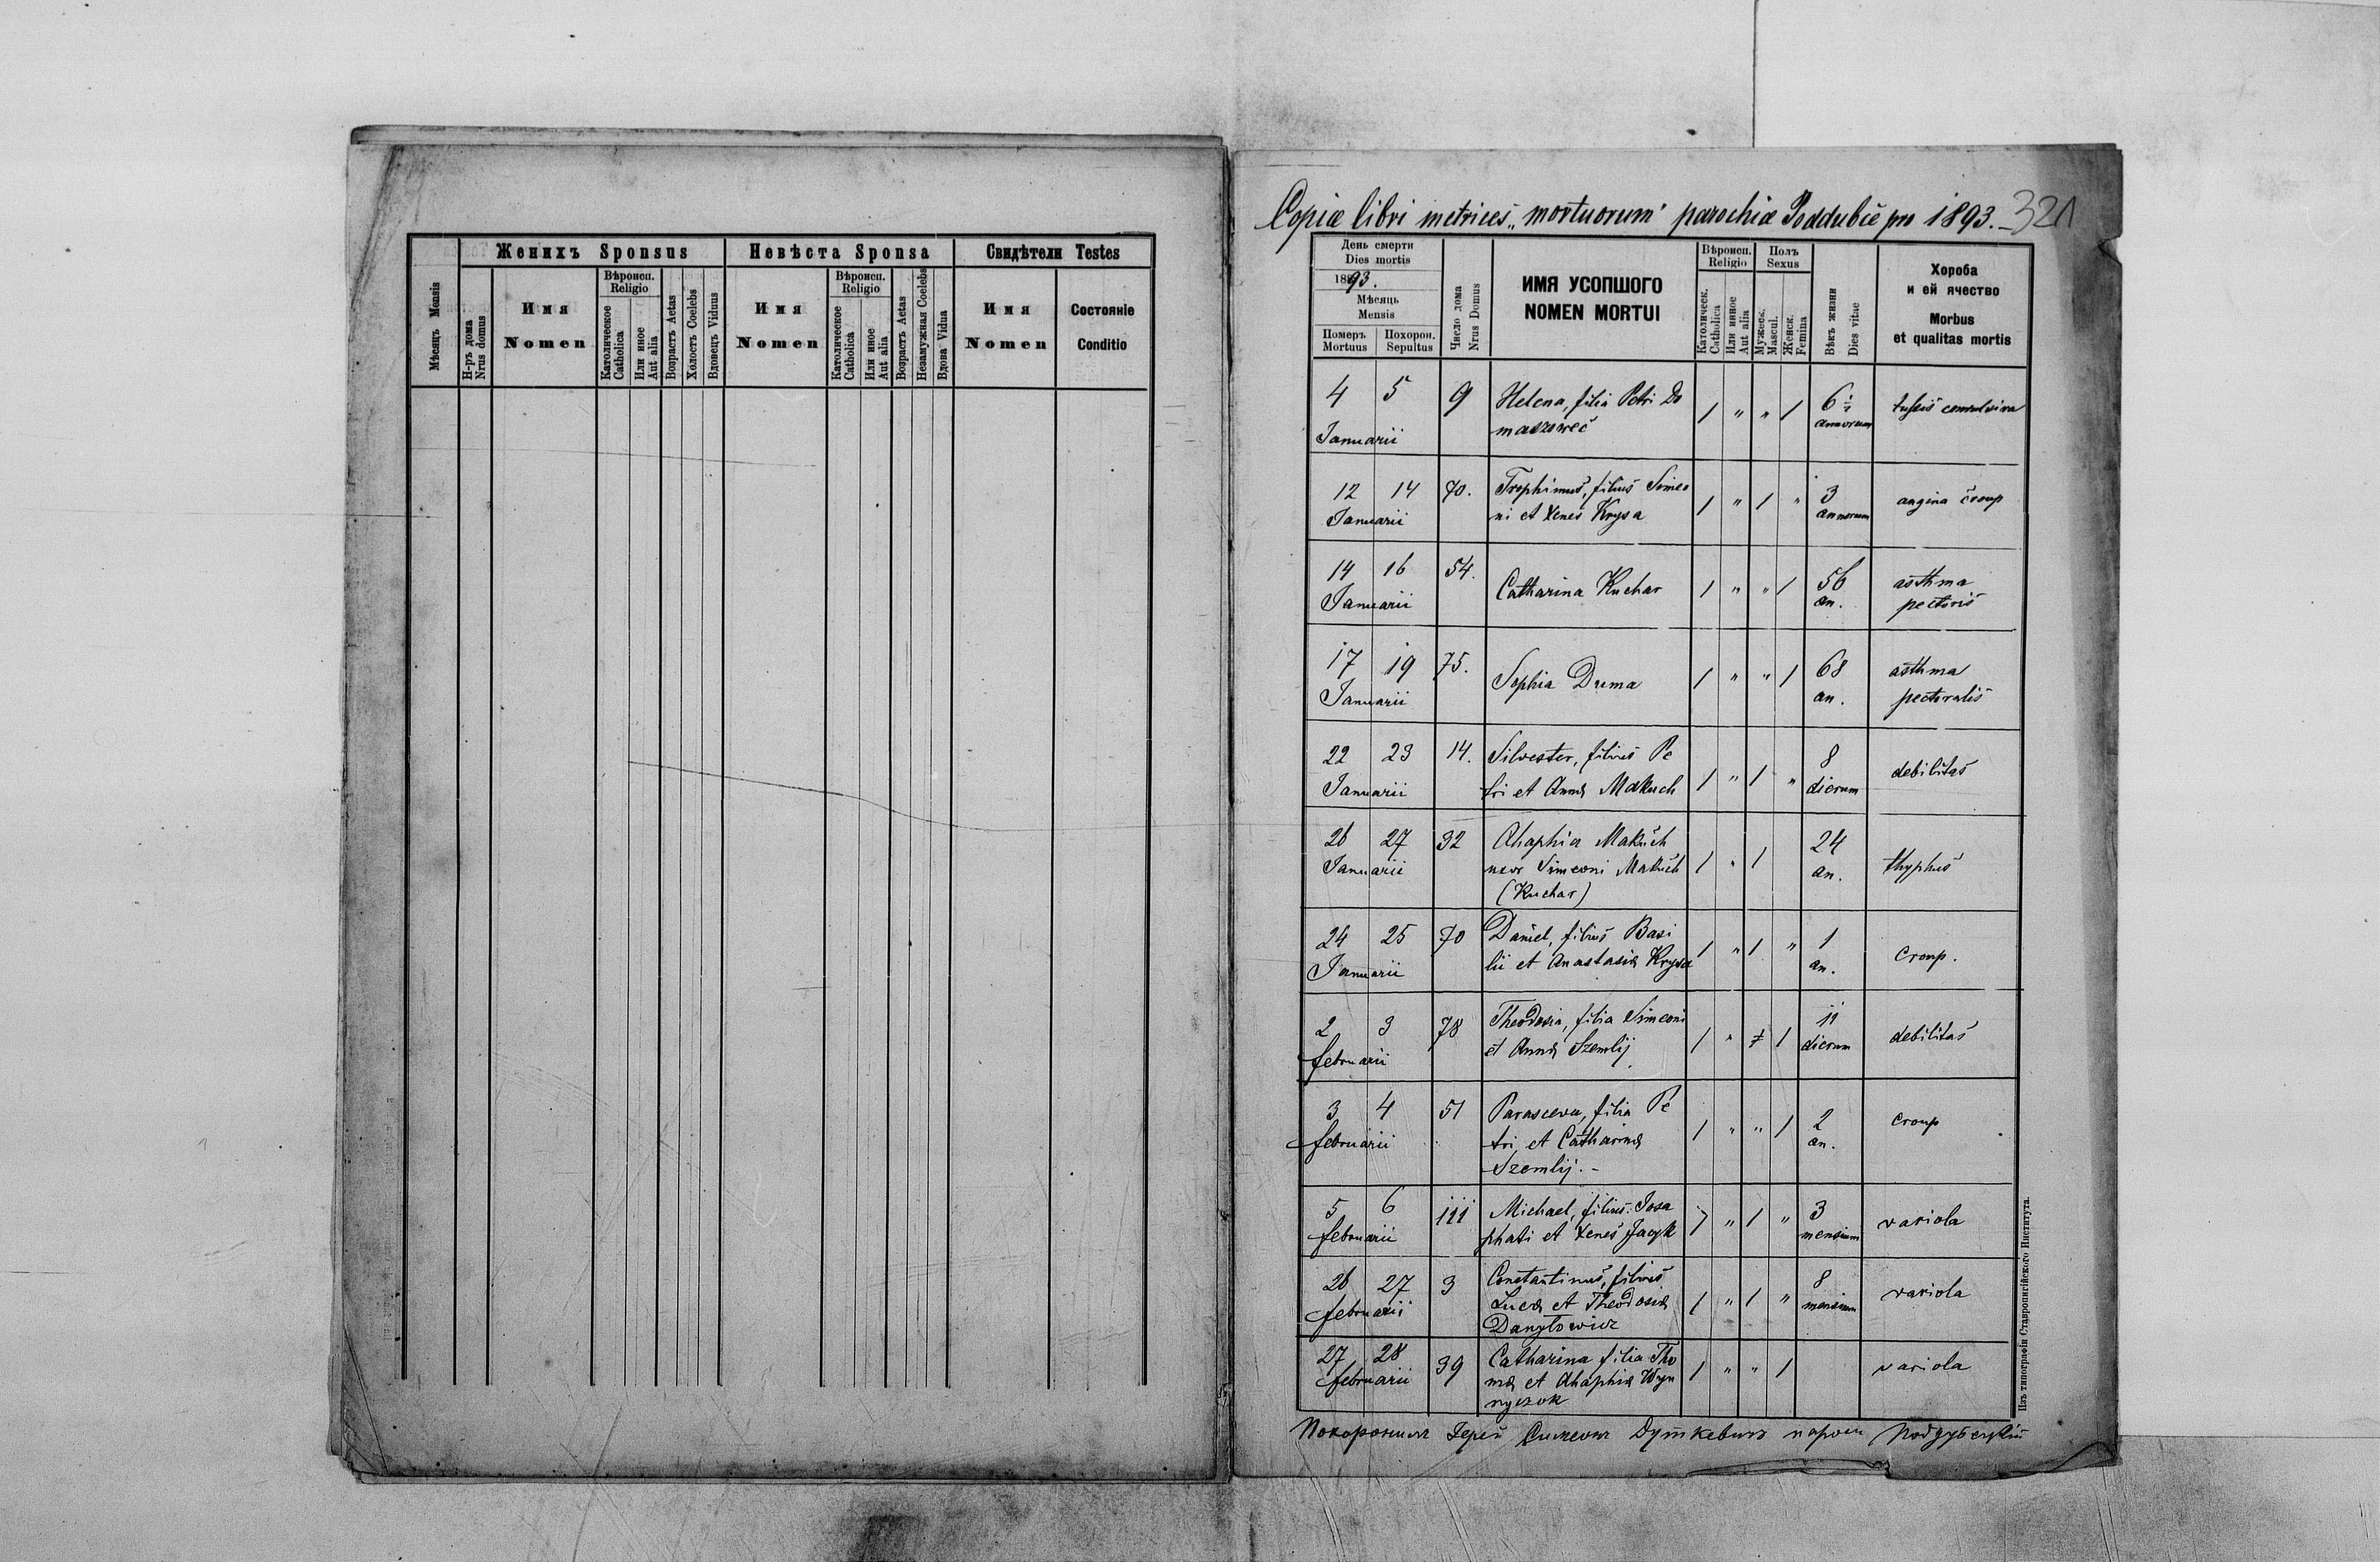 Женихъ Sponsus
Невѣста Sponsa
Свидѣтели Testes
Мѣсяць Mensis
Н-ръ дома
Nrus domus
Имя
Nomen
Вѣроисп.
Religio
Католическое
Catholica
Или иное
Aut alia
Возрастъ Aetas
Холостъ Coelebs
Вдовецъ Viduus
Имя
Nomen
Вѣроисп.
Religio
Католическое
Catholica
Или иное
Aut alia
Возрастъ Aetas
Незамужная Coelebs
Вдова Vidua
Имя
Nomen
Состояніе
Conditio
Copiæ libri metrices „mortuorum" parochiæ Poddubce pro 1893. 321
День смерти
Dies mortis
1893.
Мѣсяць
Mensis
Померъ
Mortuus
Похорон.
Sepultus
Число дома
Nrus Domus
ИМЯ УСОПШОГО
NOMEN MORTUI
Вѣроисп.
Religio
Католическ.
Catholica
Или инное
Aut alia
Полъ
Sexus
Мужеск.
Mascul.
Женск.
Femina
Вѣкъ жизни
Dies vitae
Хороба
и ей ячество
Morbus
et qualitas mortis
4 5 9 Helena, filia Petri Do 1 " " 1 6 1/2 tussis convulsiva
Januarii maszoweć annorum
12 14 70. Trophimus, filius Simeo 1 " 1 " 3 angina croup
Januarii ni et Xenes Krysa annorum
14 16 54. Catharina Kuchar 1 " " 1 56 asthma
Januarii an. pectoris
17 19 75. Sophia Duma 1 " " 1 68 asthma
Januarii an. pectoralis
22 23 14. Silvester, filius Pe 1 " 1 " 8 debilitas
Januarii tri et Annæ Makuch dierum
26 27 32 Ahaphia Makuch 1 " 1 24 thyphus
Januarii uxor Simeoni Makuch an.
(Kuchar)
24 25 70 Daniel, filius Basi 1 " 1 " 1 croup.
Januarii lii et Anastasiæ Krysa an.
2 3 78 Theodosia, filia Simeoni 1 " 1 11 debilitas
februarii et Annæ Szemlij dierum
3 4 51 Parasceva, filia Pe 1 " " 1 2 croup
februarii tri et Catharinæ an.
Szemlij.-
5 6 111 Michael, filius Josa 1 " 1 " 3 variola
februarii phati et Xenes Jacyk mensium
26 27 3 Constantinus, filius 1 " 1 " 8 variola
februarii Lucæ et Theodosiæ mensium
Danyłowicz
27 28 39 Catharina filia Tho 1 " " 1 variola
februarii mæ et Ahaphiæ Wyn
nyczok
Похоронилъ Іерей Симеонъ Дуткевичъ парохъ Поддубецкій
Изъ типографіи Ставропигійского Института.